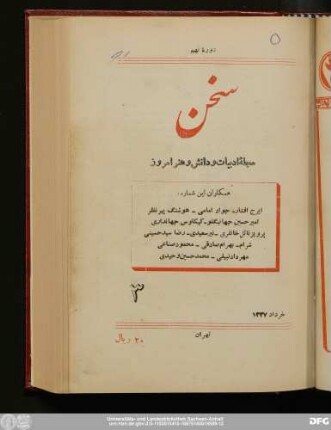 دوره نهم
سخن
مجله ادبیات و دانش و هنر امروز
همکاران این شماره:
ایرج افشار - جواد امامی - هوشنگ پیرنظر
امیرحسین جهانبگلو - کیکاوس جهانداری
پرویز ناتل خانلری - نیرسعیدی - رضا سیدحسینی
شرام - بهرام صادقی - محمود صناعی
مهرداد نبیلی - محمدحسین وحیدی
۳
خرداد ۱۳۳۷
تهران
۲۰ ریال
Universitäts- und Landesbibliothek Sachsen-Anhalt
DFG